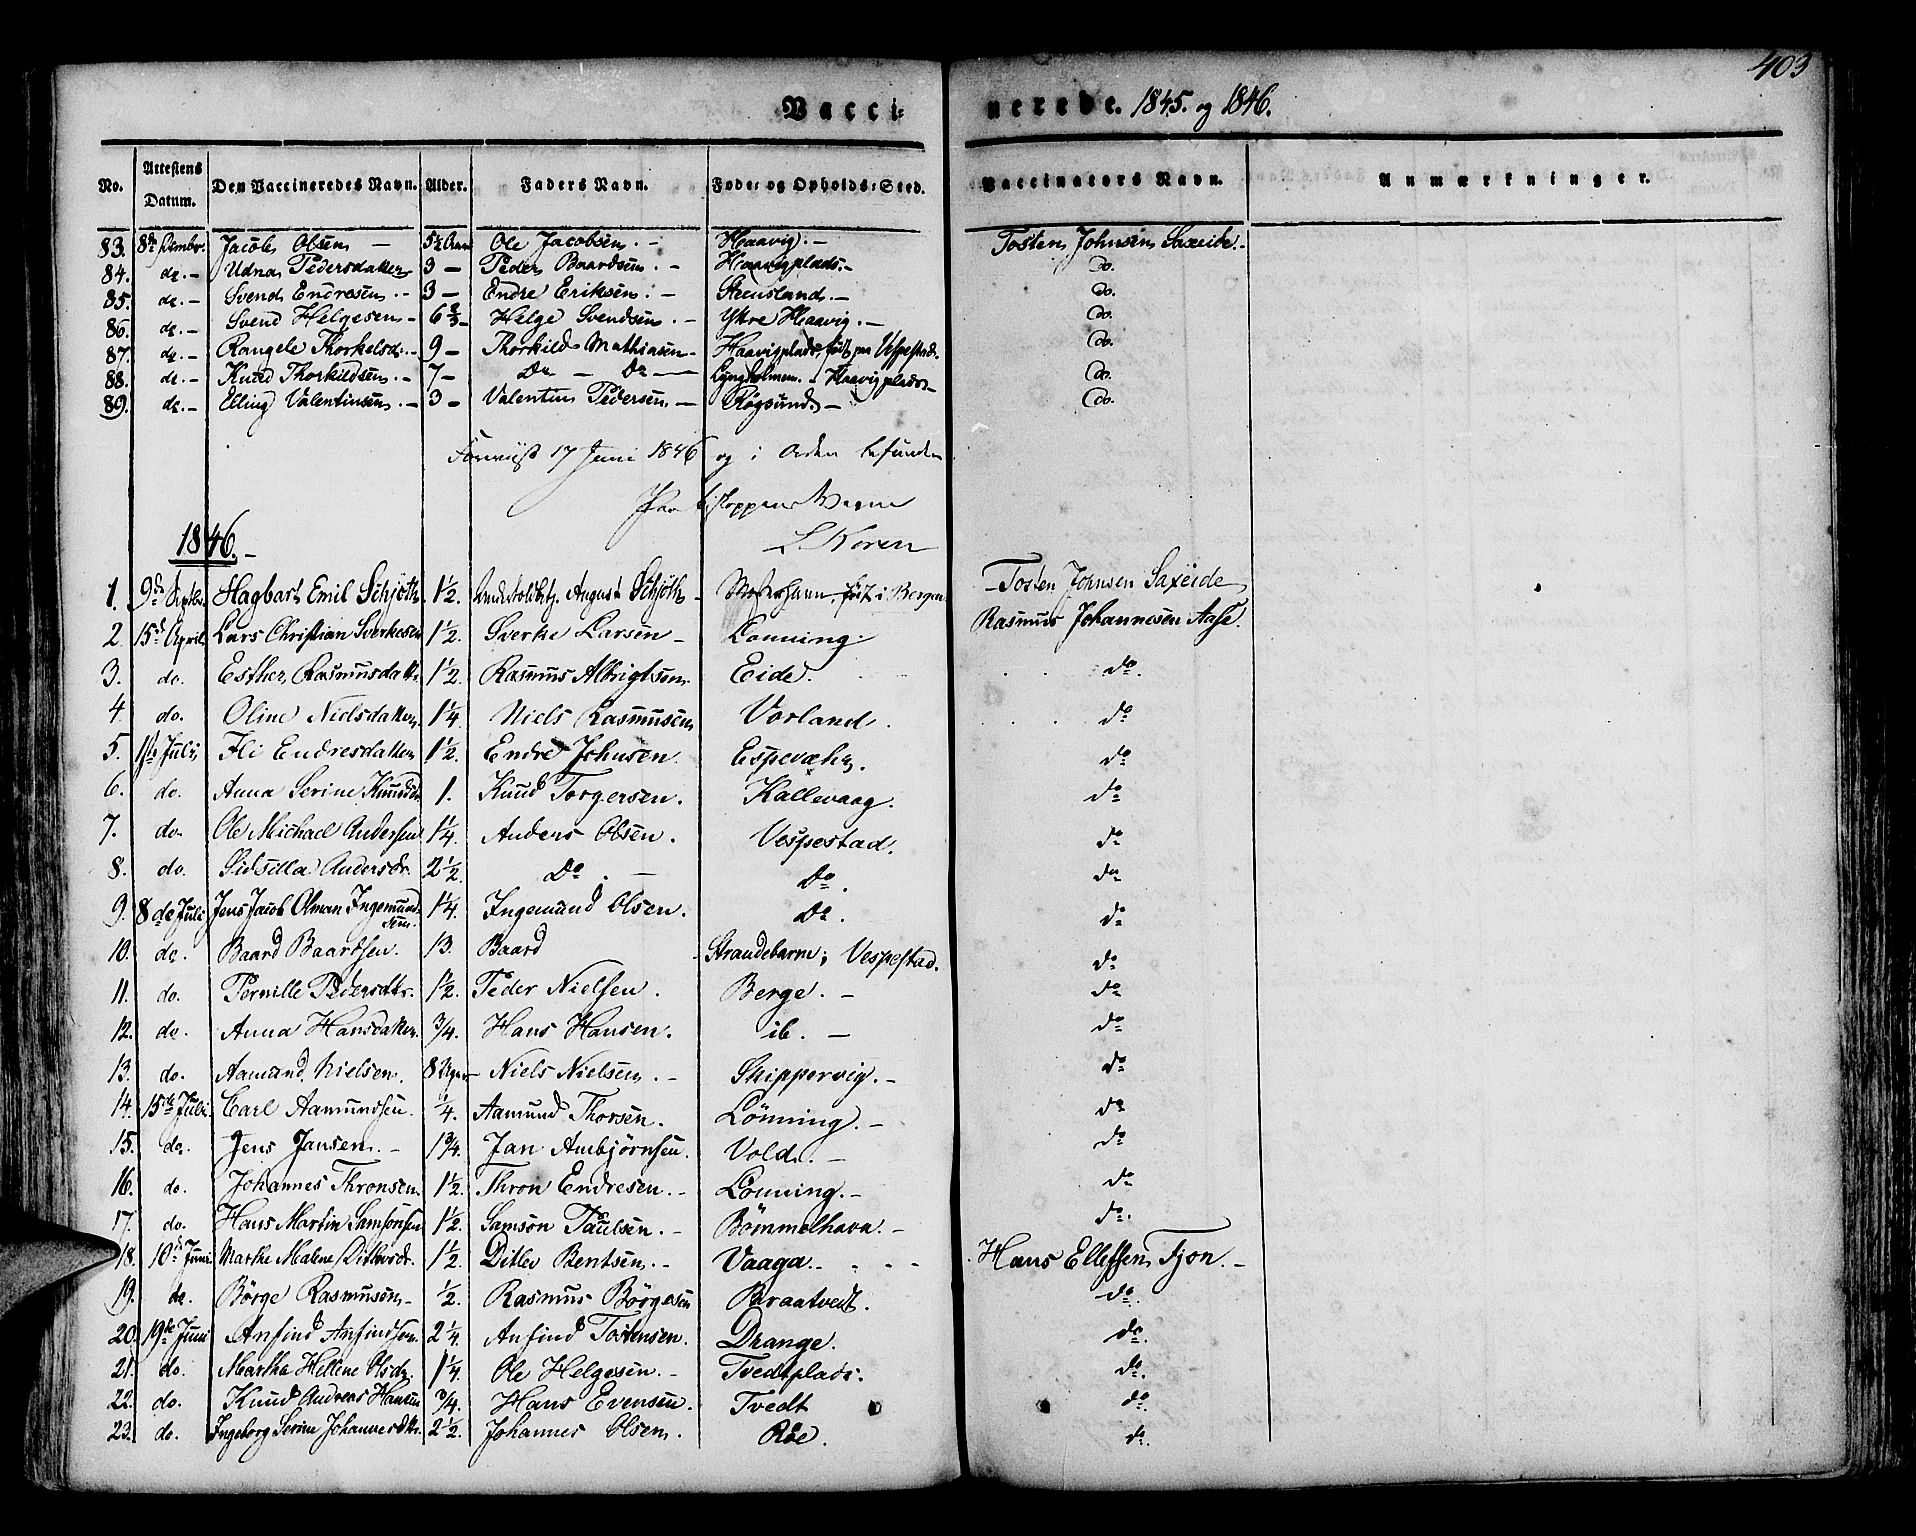 403
Vacci=nerede. 1845. og 1846.
No. Attestens Datum. Den Vaccineredes Navn. Alder. Faders Navn. Føde- og Opholds-Sted. Vaccinators Navn. Anmærkninger.
83. 8de Dcmbr. Jacob Olsen — 5½ Aar Ole Jacobsen. — Haavig. — Tosten Johnsen Saxeide. -
84. do. — Udna Pedersdatter 3 — Peder Baardsen. — Haavigplads. — Do.
85. do. — Svend Endresen. — 3 — Endre Eriksen. — Steensland. — Do.
86. do. — Svend Helgesen — 6 2/3 — Helge Svendsen. — Ystre Haavig. — Do.
87. do. — Rangele Thorkelsd. — 9 — Thorkild Mathiasen — Haavigplads, født paa Vespestad. Do.
88. do. — Knud Thorkildsen. — 7 — Do — Do — Lyngholmen. — Haavigplads — Do.
89. do. — Elling Valentinsen. — 3 — Valentin Pedersen. — Røgsund. — Do.
Foreviist 17 Juni 1846 og i Orden befunden
Paa Bispens Vegne
L Koren
1846. —
1. 9de Septbr. Hagbart Emil Schjöth. 1½. August Schjöth. Mosterhavn, født i Bergen. — Tosten Johnsen Saxeide
2. 15d April. Lars Christian Sverkesen 1½. Sverke Larsen — Lønning. Rasmus Johannesen Aase.
3. do. Esther Rasmusdatter 1½. Rasmus Albrigtsen. Eide. do.
4. do. Oline Nielsdatter 1¼. Niels Rasmusen Vorland. do
5. 1ste Juli Eli Endresdatter 1½. Endre Johnsen. Espevæhr. do
6. do. Anna Serine Knudsdr. 1. Knud Torgersen. Kallevaag. do
7. do. Ole Michael Andersen 1¼. Anders Olsen. Vespestad. do
8. do. Sidsilla Andersdr. 2½. Do. — Do. do
9. 8de Juli Jens Jacob Olman Ingemundsen. 1¼. Ingemund Olsen. Do. do
10. do. Baard Baardsen. 13. Baard Strandebarm; Vespestad. do
11. do. Pernille Pedersdtr. 1½. Peder Nielsen. Berge. — do
12. do. Anna Hansdatter. 3/4. Hans Hansen. ib. — do
13. do. Aamund Nielsen. 8 Uger — Niels Nielsen. — Skippervig. — do
14. 15de Juli. Carl Aamundsen. ¼. Aamund Thorsen. Lönning. — do
15. do. Jens Jansen. — 1 3/4. Jan Ambjörnsen. Vold. — do
16. do. Johannes Thronsen. 1½. Thron Endresen. — Lønning. — do
17. do. Hans Martin Samsonsen 1½. Samson Paulsen. — Bömmelhavn. — do.
18. 10de Juni Marthe Malene Ditlevsdr. 1½. Ditlev Bentsen. — Vaaga. - - - Hans Ellefsen Fjon. —
19. do. Börge Rasmusen — ½. Rasmus Börgesen Braatvedt. do.
20. 19de Juni Anfind Anfindsen. 2¼. Anfind Tostensen. Drange. do.
21. do. Martha Hellene Olsdr. 1¼. Ole Helgesen. — Tvedtplads. do.
22. do. Knud Andreas Hansen 3/4. Hans Evensen. Tvedt do.
23. do. Ingeborg Serine Johannesdtr. 2½. Johannes Olsen. Røe. do.